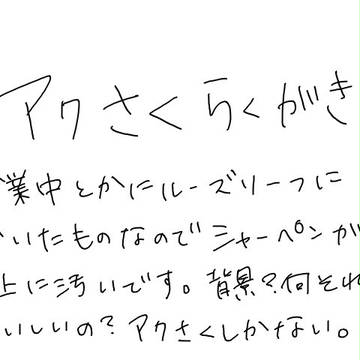 アクさくらくがき
業中とかにルーズリーフに
いたものなのでシャーペンが
上に汚いです。背景?何それ
いしいの?アクさくしかない。